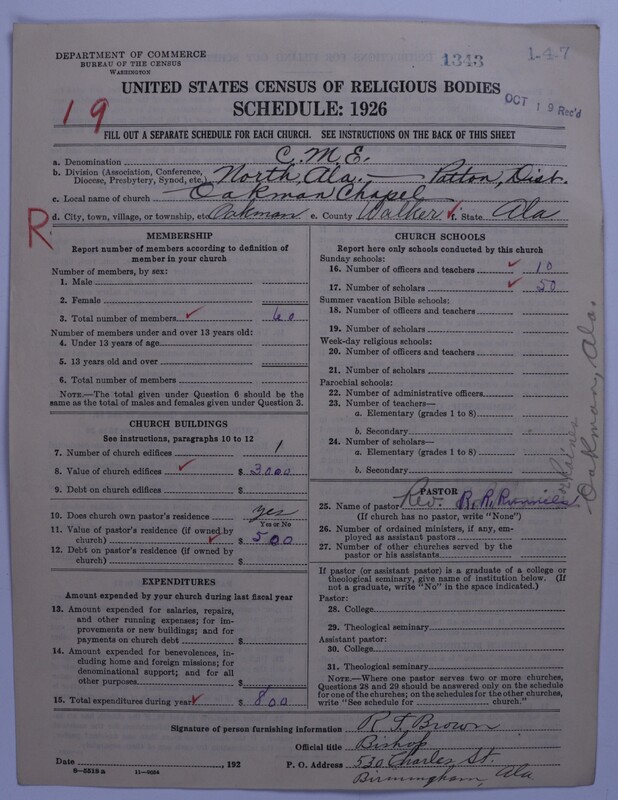 DEPARTMENT OF COMMERCE
BUREAU OF THE CENSUS
WASHINGTON
1343
1-4-7
UNITED STATES CENSUS OF RELIGIOUS BODIES
SCHEDULE: 1926
OCT 19 Rec'd
19
FILL OUT A SEPARATE SCHEDULE FOR EACH CHURCH. SEE INSTRUCTIONS ON THE BACK OF THIS SHEET
a. Denomination C.M.E.
b. Division (Association, Conference, Diocese, Presbytery, Synod, etc.) North, Ala. Patton, Dist.
c. Local name of church Oakman Chapel
R
d. City, town, village, or township, etc. Oakman e. County Walker f. State Ala
MEMBERSHIP
Report number of members according to definition of
member in your church
Number of members, by sex:
1. Male
2. Female
3. Total number of members 60
Number of members under and over 13 years old:
4. Under 13 years of age
5. 13 years old and over
6. Total number of members
NOTE.—The total given under Question 6 should be
same as the total of males and females given under Question 3.
CHURCH BUILDINGS
See instructions, paragraphs 10 to 12
7. Number of church edifices 1
8. Value of church edifices $ 3000
9. Debt on church edifices $
10. Does church own pastor's residence yes
Yes or No
11. Value of pastor's residence (if owned by
church) $ 500
12. Debt on pastor's residence (if owned by
church) $
EXPENDITURES
Amount expended by your church during last fiscal year
13. Amount expended for salaries, repairs,
and other running expenses; for im-
provements or new buildings; and for
payments on church debt $
14. Amount expended for benevolences, in-
cluding home and foreign missions; for
denominational support; and for all
other purposes $
15. Total expenditures during year $ 800
CHURCH SCHOOLS
Report here only schools conducted by this church
Sunday schools:
16. Number of officers and teachers 10
17. Number of scholars 50
Summer vacation Bible schools:
18. Number of officers and teachers
19. Number of scholars
Week-day religious schools:
20. Number of officers and teachers
21. Number of scholars
Parochial schools:
22. Number of administrative officers
23. Number of teachers—
a. Elementary (grades 1 to 8)
b. Secondary
24. Number of scholars—
a. Elementary (grades 1 to 8)
b. Secondary
PASTOR
25. Name of pastor Rev. R. R.
(If church has no pastor, write "None")
26. Number of ordained ministers, if any, em-
ployed as assistant pastors
27. Number of other churches served by the
pastor or his assistants
If pastor (or assistant pastor) is a graduate of a college or
theological seminary, give name of institution below. (If
not a graduate, write "No" in the space indicated.)
Pastor:
28. College
29. Theological seminary
Assistant pastor:
30. College
31. Theological seminary
NOTE.—Where one pastor serves two or more churches,
Questions 28 and 29 should be answered only on the schedule
for one of the churches; on the schedules for the other churches,
write "See schedule for church."
Oakman, Ala.
Signature of person furnishing information R T Brown
Official title Bishop
Date , 192 P. O. Address 530 Charles St.
Birmingham, Ala
8-5518 a 11-9024